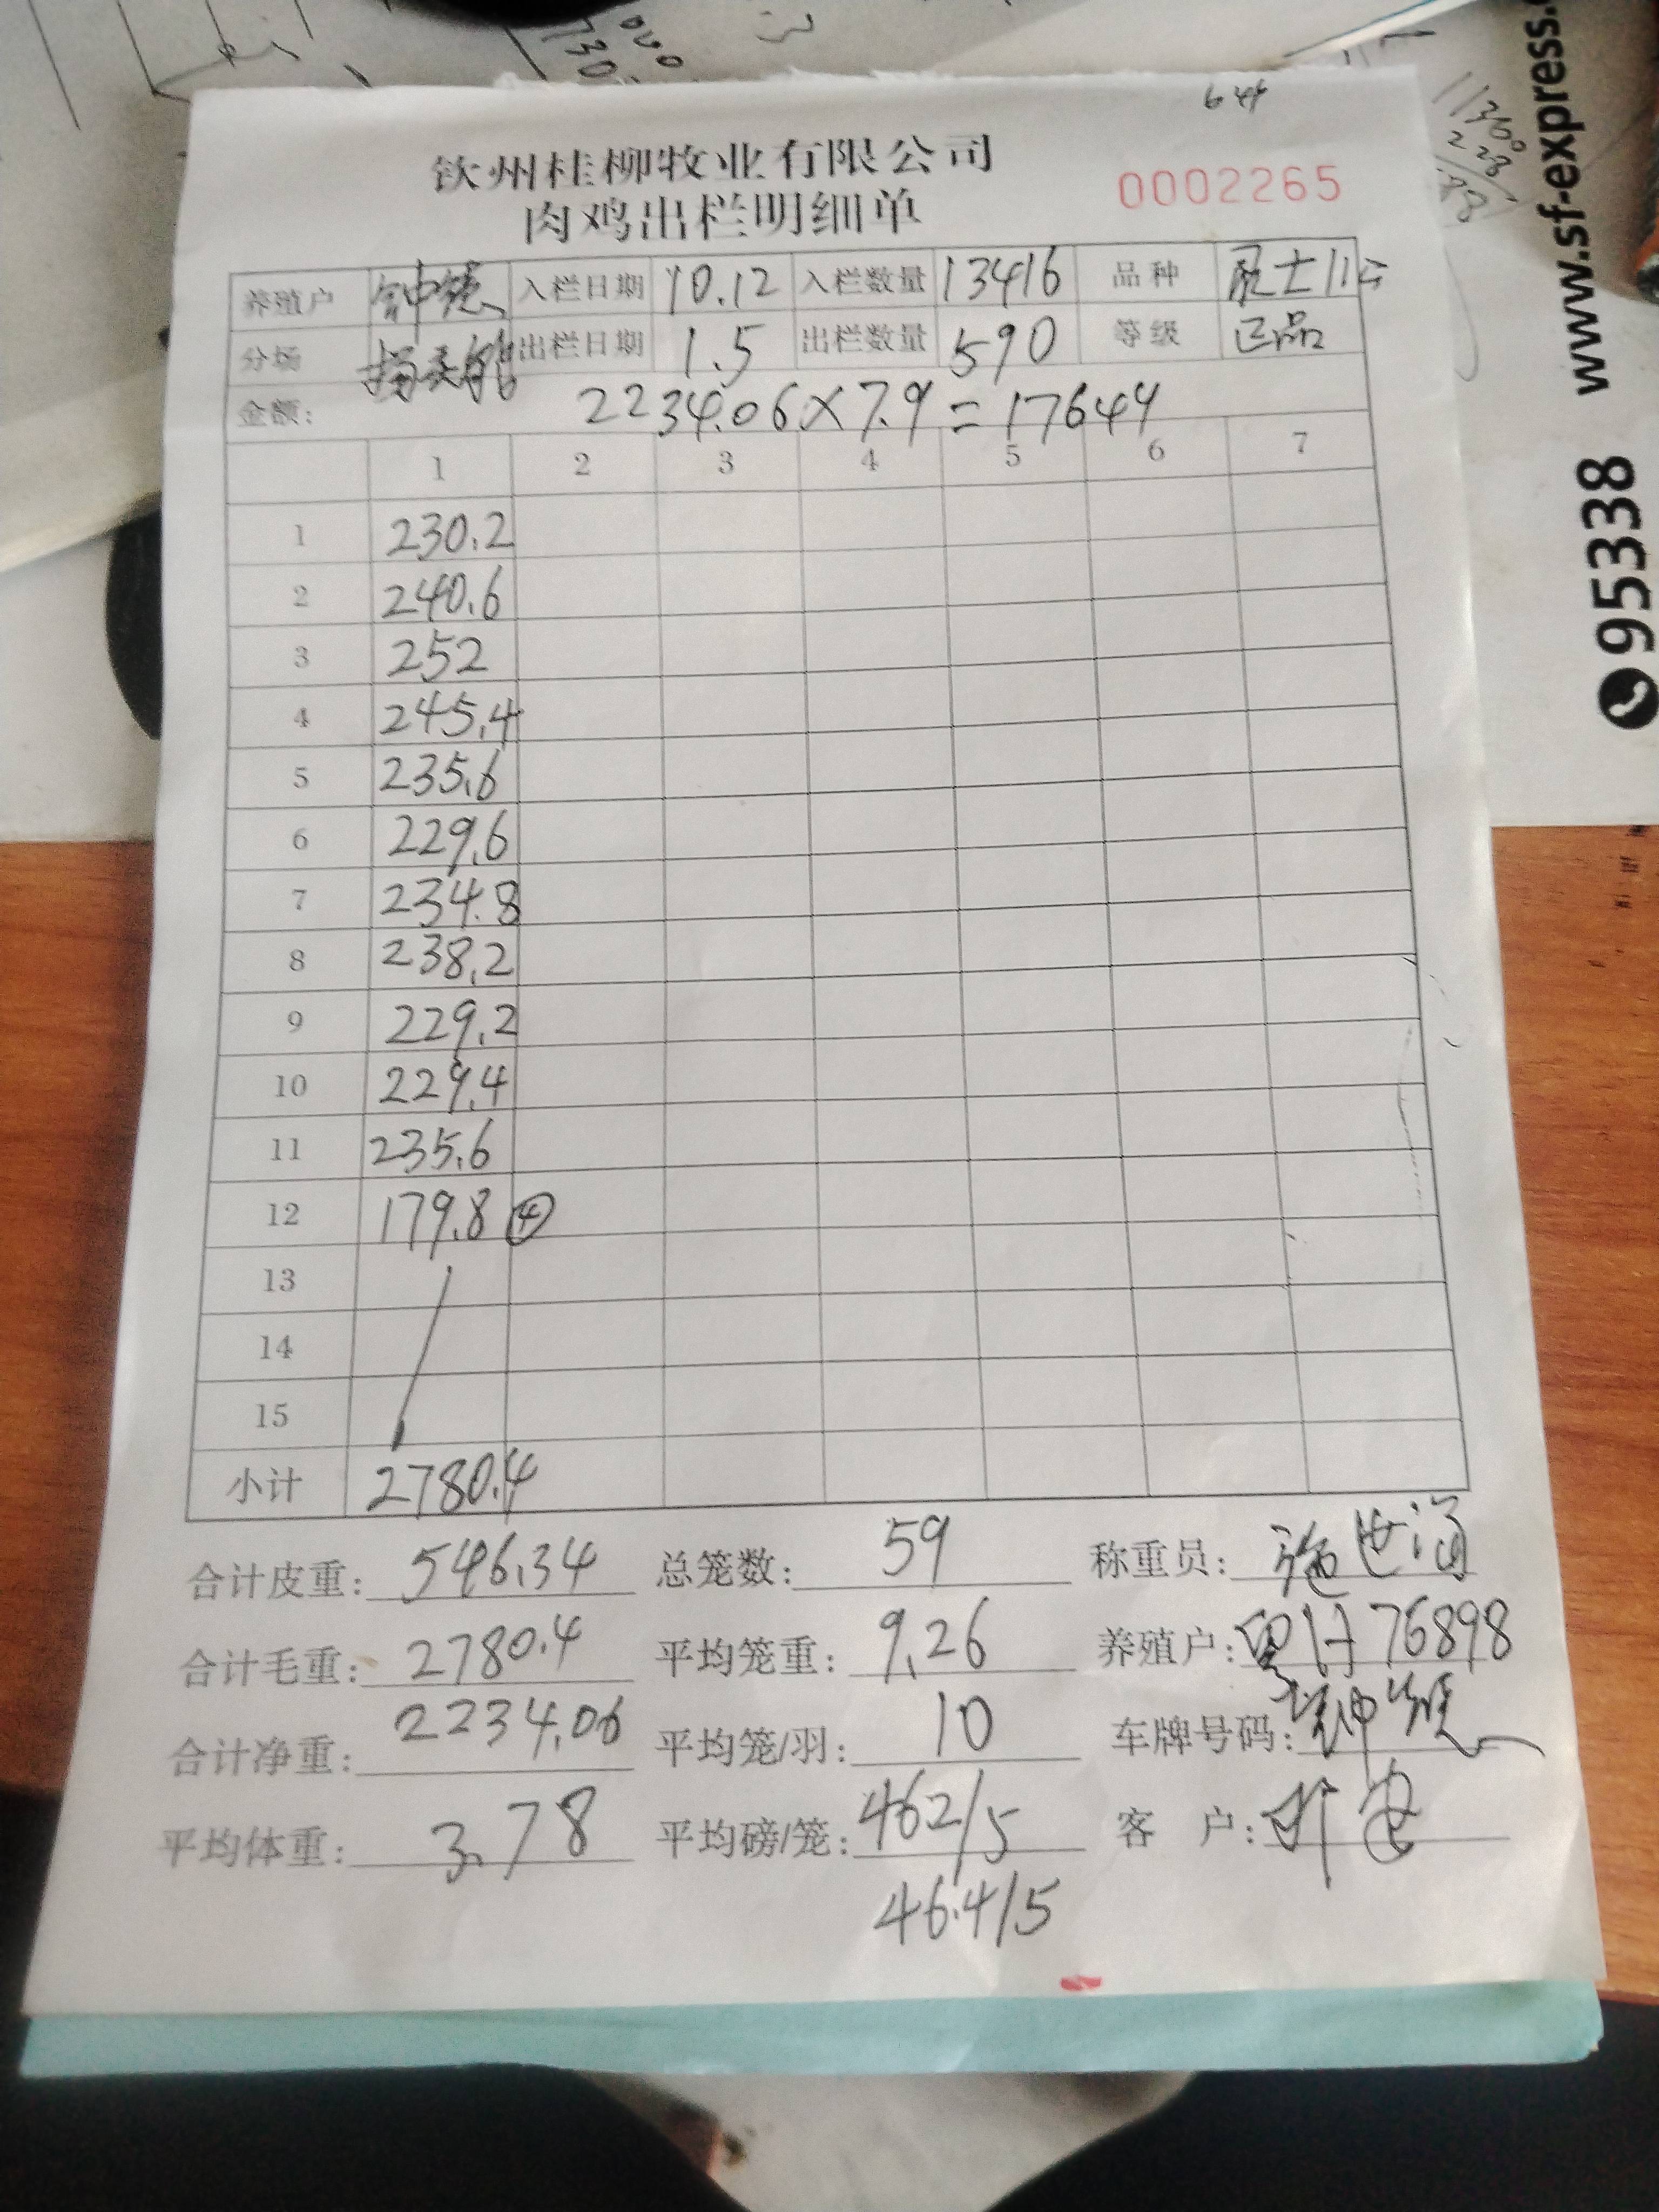 644
钦州桂柳牧业有限公司
肉鸡出栏明细单
0002265
养殖户 入栏日期 10.12 入栏数量 13416 品种
分场 出栏日期 1.5 出栏数量 590 等级 正品
金额: 2234.06×7.9=17649
1 2 3 4 5 6 7
1 230.2
2 240.6
3 252
4 245.4
5 235.6
6 229.6
7 234.8
8 238.2
9 229.2
10 229.4
11 235.6
12 179.8 ④
13
14
15
小计 2780.4
合计皮重: 546.34 总笼数: 59 称重员:
合计毛重: 2780.4 平均笼重: 9.26 养殖户: 76898
合计净重: 2234.06 平均笼/羽: 10 车牌号码:
平均体重: 3.78 平均磅/笼: 462/5 客 户:
46.4/5
www.sf-express.
95338